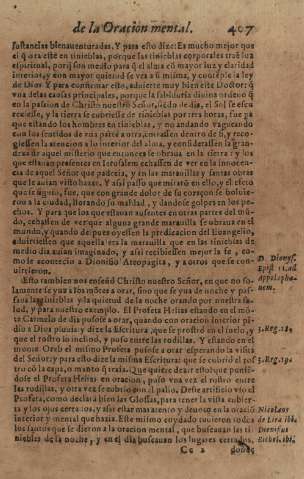 de la Oracion mental. 407
stancias bienauenturadas. Y para esto dize: Es mucho mejor que
el q̃ ora esté en tinieblas, porque las tinieblas corporales traẽ luz
espiritual, porq̃ son medio para q̃ el alma cõ mayor luz y claridad
interior, y con mayor quietud se vea a si misma, y contẽple la ley
de Dios. Y para confirmar esto, aduierte muy bien este Doctor: q̃
vna de las causas principales, porque la sabiduria diuina ordenò q̃
en la passion de Christo nuestro Señor, siẽdo de dia, el Sol se escu
reciesse, y la tierra se cubriesse de tinieblas por tres horas, fue pa
que estando los hombres en tinieblas, y no andando vagueando
con los sentidos de vna parte a otra, entrassen dentro de si, y reco-
giessen la atencion a lo interior del alma, y considerassen la gran-
deza de aquel misterio que entonces se obraua en la tierra: y los
que estauan presentes en Ierusalem echassen de ver en la inocen-
cia de aquel Señor que padecia, y en las marauillas y santas obras
que le auian visto hazer. Y assi passò que mirarõ en ello, y el efeto
que se siguio, fue, que con grande dolor de su coraçon se boluie-
ron a la ciudad, llorando su maldad, y dandose golpes en los pe-
chos. Y para que los que estauan ausentes en otras partes del mũ-
do, echassen de ver que alguna grande marauilla se obraua en el
mundo, y quando despues oyessen la predicacion del Euangelio,
aduirtiessen que aquella era la marauilla que en las tinieblas de
medio dia auian imaginado, y assi recibiessen mejor la fe, co-
mo le acontecio a Dionisio Areopagita, y a otros que se con-
uirtieron.
D. Dionys.
Epist. 11. ad
Appolopha-
nem.
Esto tambien nos enseñò Christo nuestro Señor, en que no so-
lamente se yua a los mõtes a orar, sino que se yua de noche y pas-
saua las tinieblas y la quietud de la noche orando por nuestra sa-
lud, y para nuestro exemplo. El Profeta Helias estando en el mõ-
te Carmelo se puso a orar, quando con oracion interior pi-
dio a Dios pluuia: y dize la Escritura, que se prostrò en el suelo, y
que el rostro inclinò, y puso entre las rodillas. Y estando en el
3. Reg. 18.
monte Oreb el mismo Profeta puesto a orar esperando la visita
del Señor, y para esto dize la misma Escritura que se cubrio el ros
3. Reg. 19.
tro cõ la capa, o manto q̃ traia. Que quiere dezir esto que ponien-
dose el Profeta Helias en oracion, puso vna vez el rostro entre
las rodillas, y otra vez se cubrio con el palio. Deste artificio vsò el
Profeta, como declarã bien las Glossas, para tener la vista cubier-
ta y los ojos cerrados, y assi estar mas atento y deuoto en la oraciõ
Nicolaus
interior y mental que hazia. Este mismo cuydado tuuieron todos
de Lira ibi.
los santos que se dieron a la oracion mental, que buscauan las ti-
Dionisius
nieblas de la noche, y en el dia buscauan los lugares cerrados,
Rickel. ibi.
Cc 2 donde